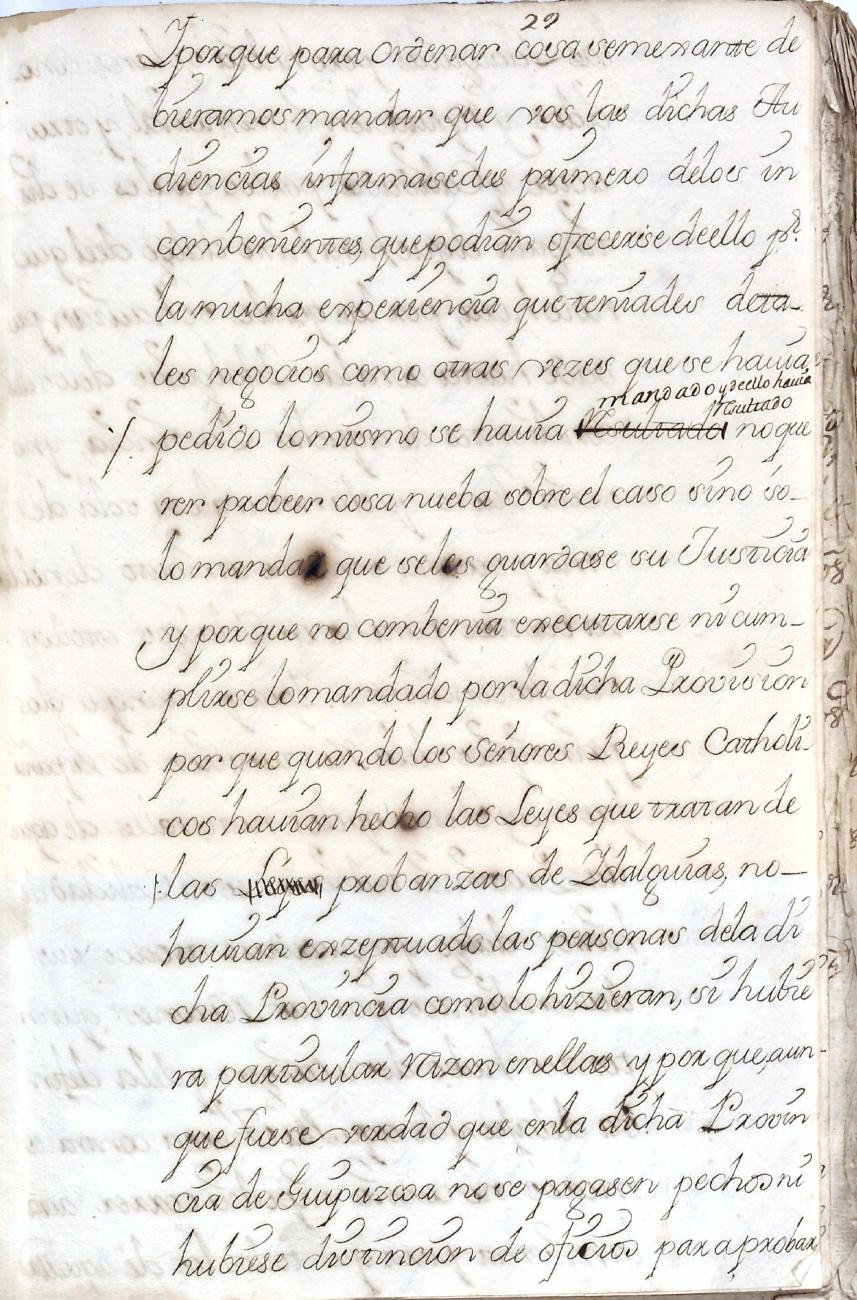 29
Y porque para ordenar cosa semexante de
bieramos mandar que vos las dichas Au
diencias informasedes primero delos in
combenientes, que podian ofrecerse de ello pr.
la mucha experiencia que teniades de ta-
les negocios como otras vezes que se havia
mandado y de ello havia
resultado
pedido lo mismo se havia resultado no que
rer probeer cosa nueba sobre el caso sino so-
lo mandar que se les guardase su Justicia
y porque no combenia executarse ni cum-
plirse lo mandado por la dicha Provision
por que quando los Señores Reyes Catholi-
cos havian hecho las Leyes que tratan de
las probanzas de Idalguias, no-
havian exzeptuado las personas dela di
cha Provincia como lo hizieran, si hubie
ra particular razon en ellas y por que, aun-
que fuese verdad que en la dicha Provin
cia de Guipuzcoa no se pagasen pechos ni
hubiese distincion de oficios para aprobar